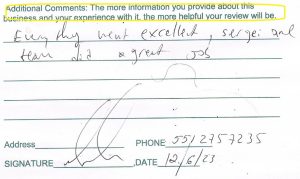 Additional Comments: The more information you provide about this
business and your experience with it, the more helpful your review will be.
Everything went excellent, sergei and
team did a great job
Address
PHONE 5512757235
SIGNATURE ,DATE 12/6/23